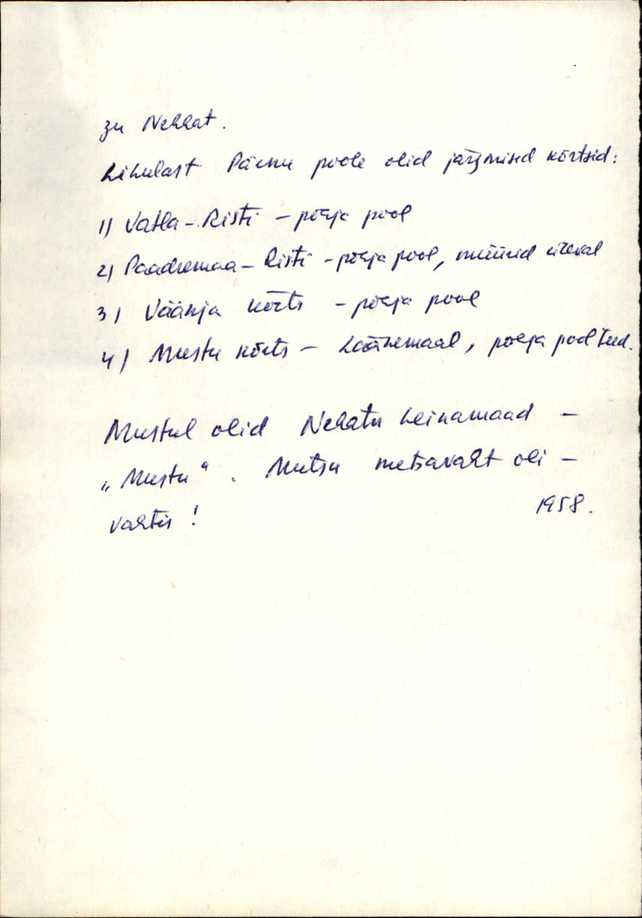 zu Nehhat.
Lihulast Pärnu poole olid järgmised kõrtsid:
1) Vatla-Risti - põhja pool
2) Paadremaa - Risti - põhja pool, müürid üleval
3) Väänja kõrts - põhja pool
4) Mustu kõrts - Läänemaal, põhja pool teed.
Mustul olid Nehatu heinamaad -
„Mustu“. Mutsu metsavaht oli -
vahtis!
1958.